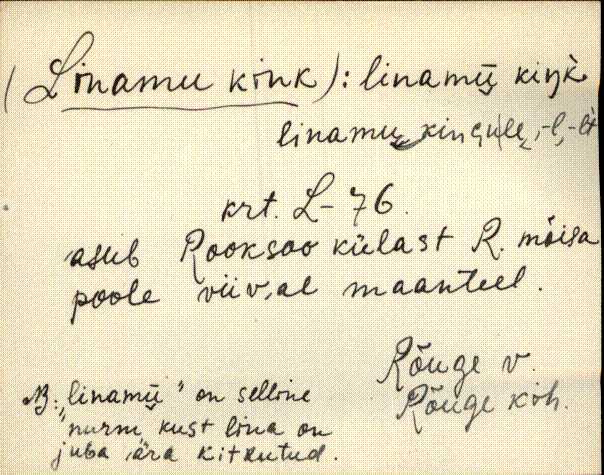 (Linamu kink): linamu̬ kiŋk
linamu kingule, -l, -lt
krt. L-76.
asub Rooksoo külast R. mõisa
poole viival maanteel.
Rõuge v.
Rõuge kih.
NB: „linamu̬" on selline
nurm, kust lina on
juba ära kitkutud.